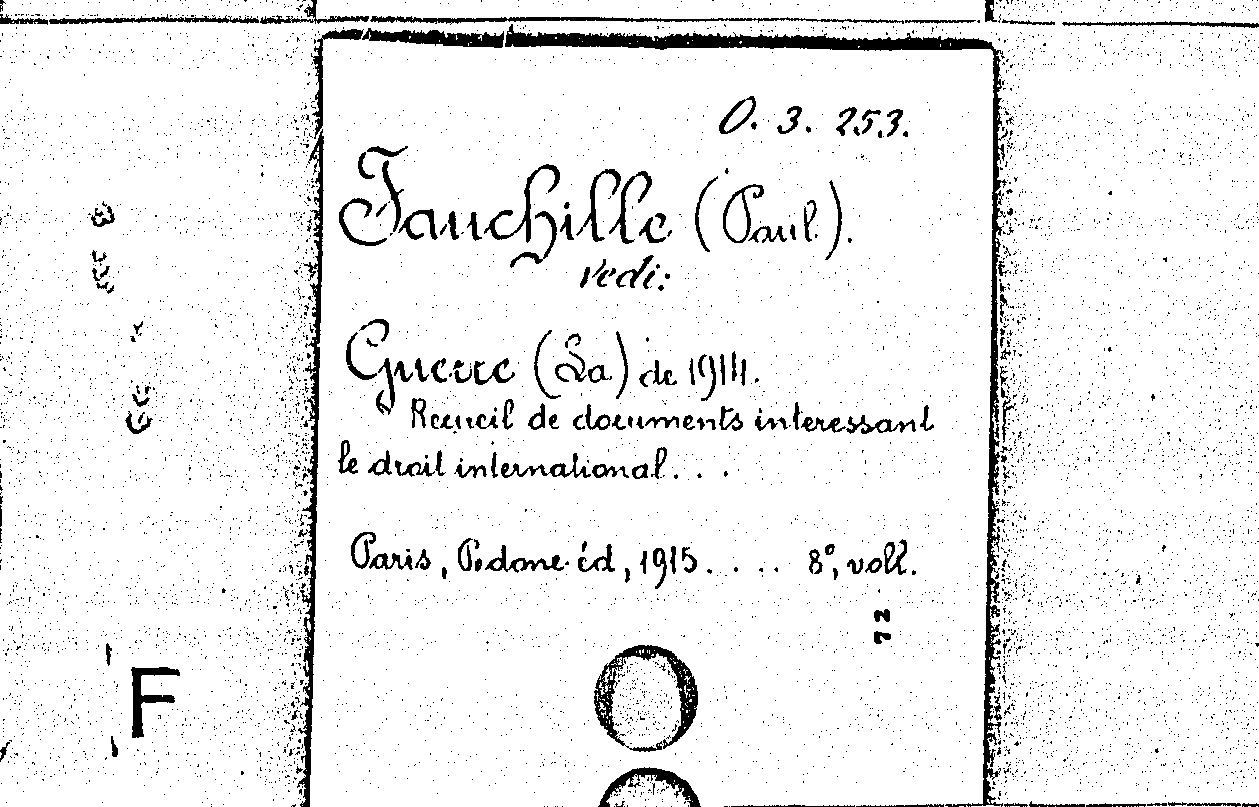 O. 3. 253.
Fauchille (Paul).
vedi:
Guerre (La) de 1914.
Recueil de documents interessant
le droit international. . .
Paris, Pedone éd, 1915. . . . 8°, voll.
72
F